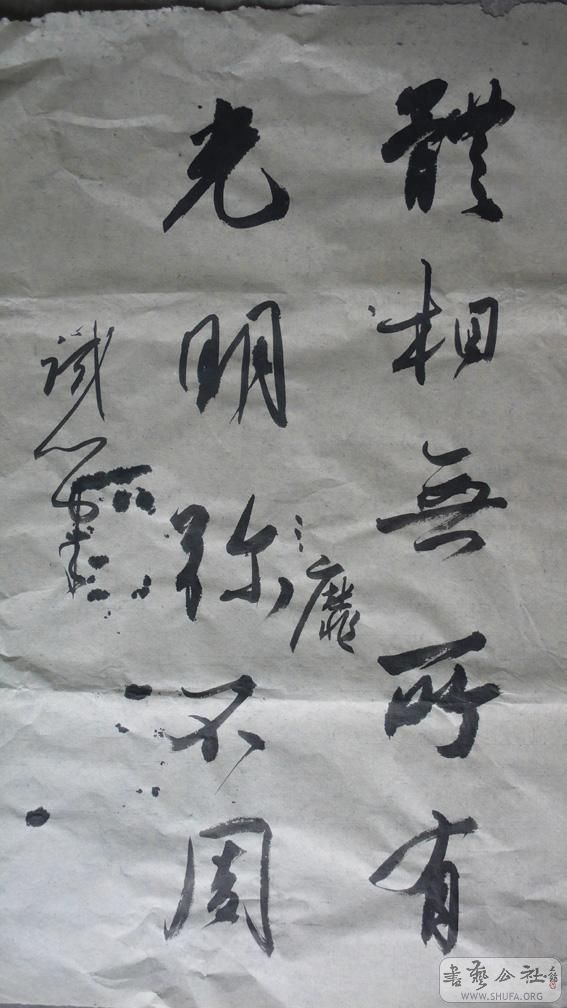 體相無所有
光明弥不周
靡
誠心
書藝公社
WWW.SHUFA.ORG